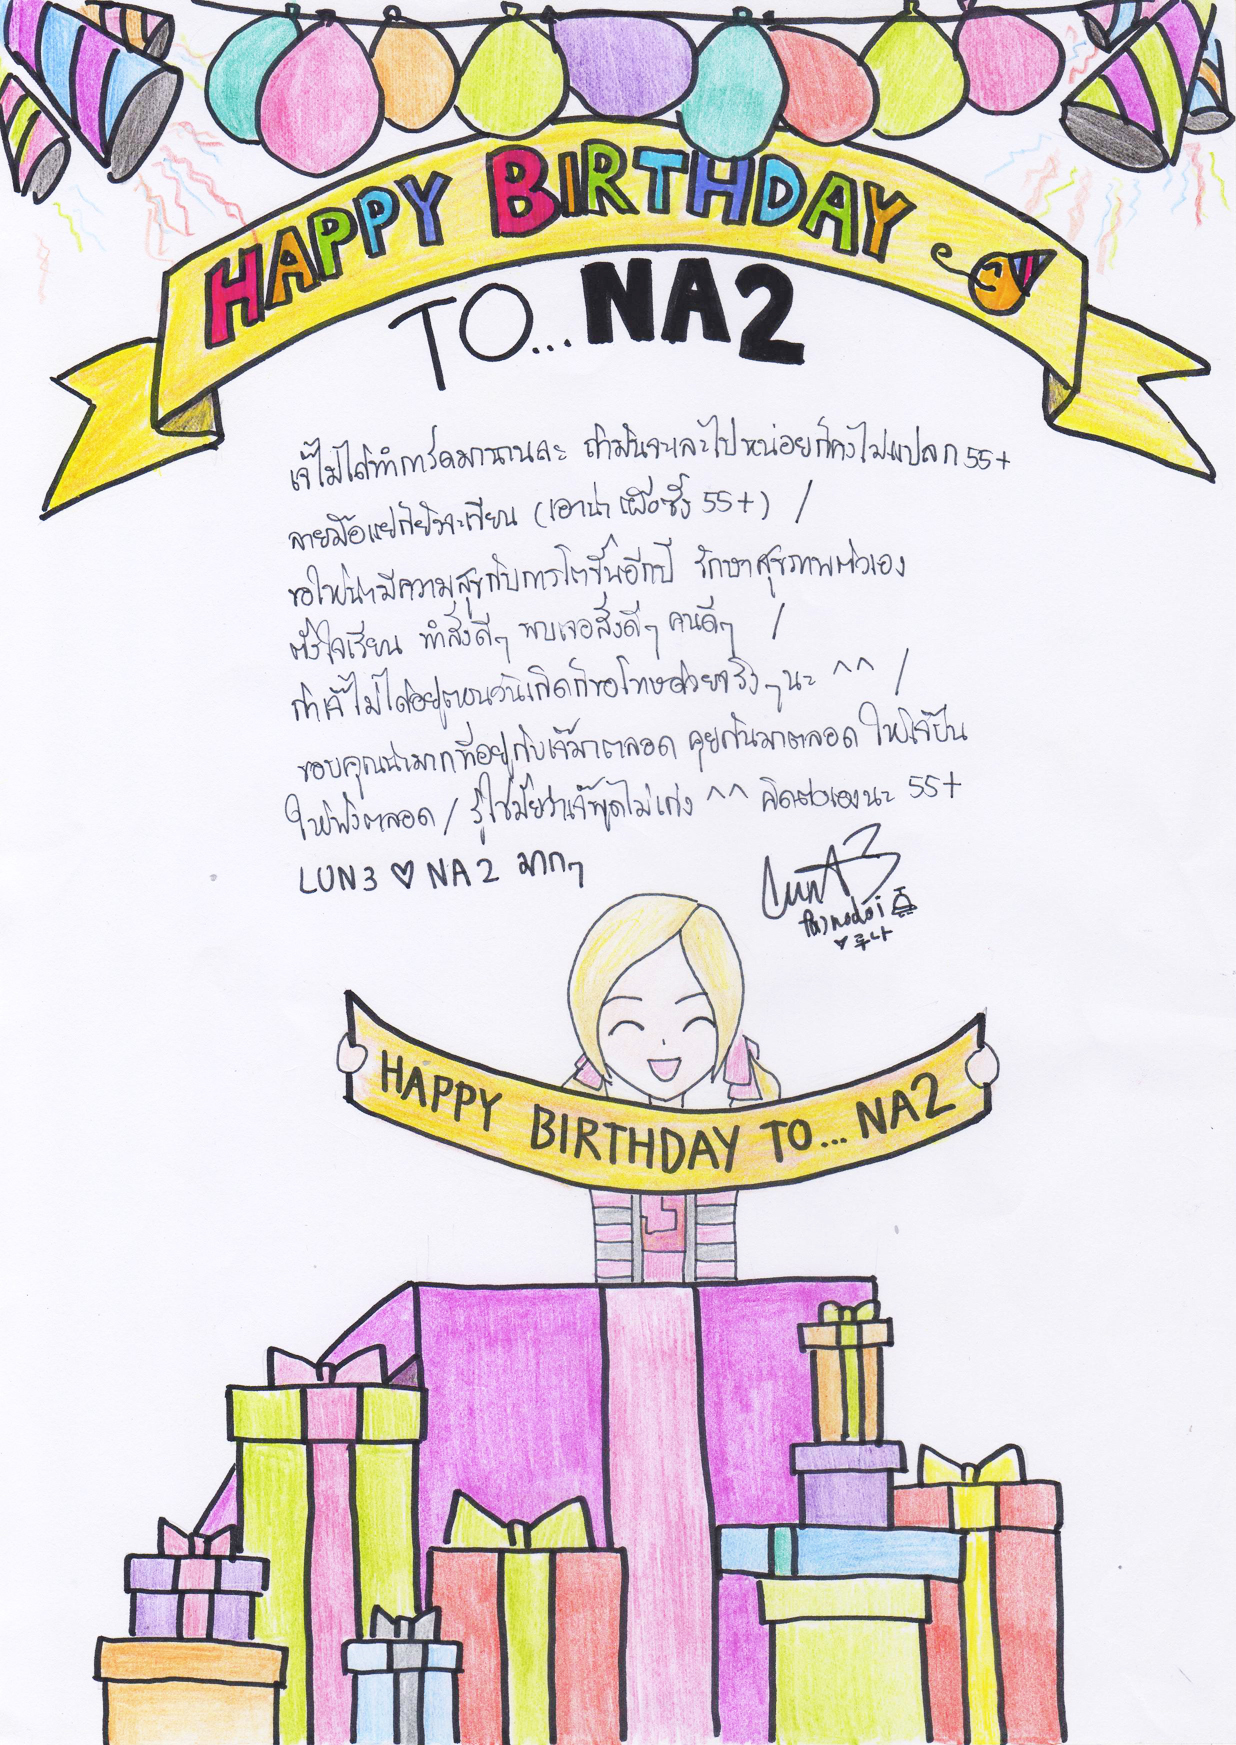 HAPPY BIRTHDAY
TO... NA2
เจ๊ไม่ได้ทำการ์ดมานานละ ถ้ามันจะเละไปหน่อยก็คงไม่แปลก 55+
ลายมือแย่ก็ยังจะเขียน (เอาน่า เผื่อซึ้ง 55+) /
ขอให้น่ามีความสุขกับการโตขึ้นอีกปี รักษาสุขภาพตัวเอง
ตั้งใจเรียน ทำสิ่งดีๆ พบเจอสิ่งดีๆ คนดีๆ /
ถ้าเจ๊ไม่ได้อยู่ตอนวันเกิดก็ขอโทษด้วยจริงๆนะ ^^ /
ขอบคุณน่ามากที่อยู่กับเจ๊มาตลอด คุยกันมาตลอด ให้เจ๊ปั่น
ให้ฟังตลอด / รู้ใช่มั้ยว่าเจ๊พูดไม่เก่ง ^^ คิดต่อเองนะ 55+
LUN3 ♡ NA2 มากๆ
LunA3
♥ 루나
HAPPY BIRTHDAY TO... NA2